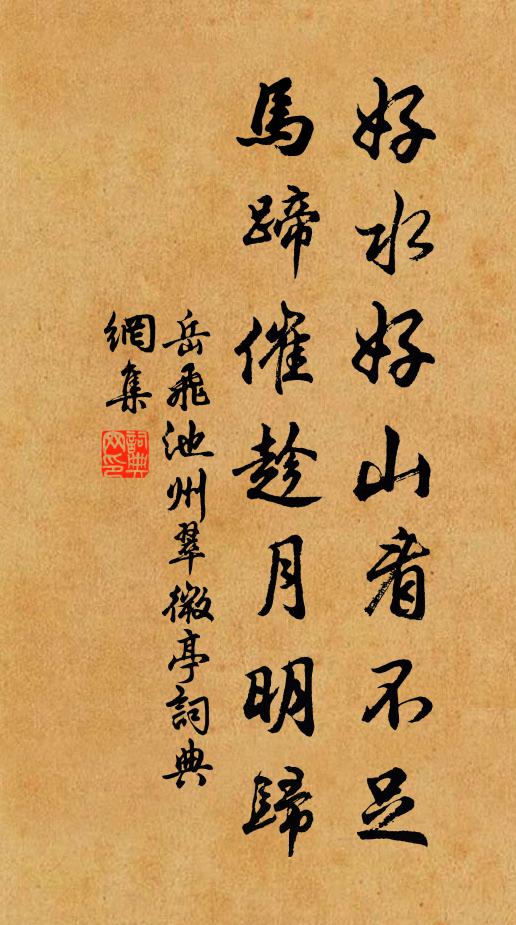 好水好山看不足
馬蹄催趁月明歸
岳飛池州翠微亭詞典
網集
詞典
网印